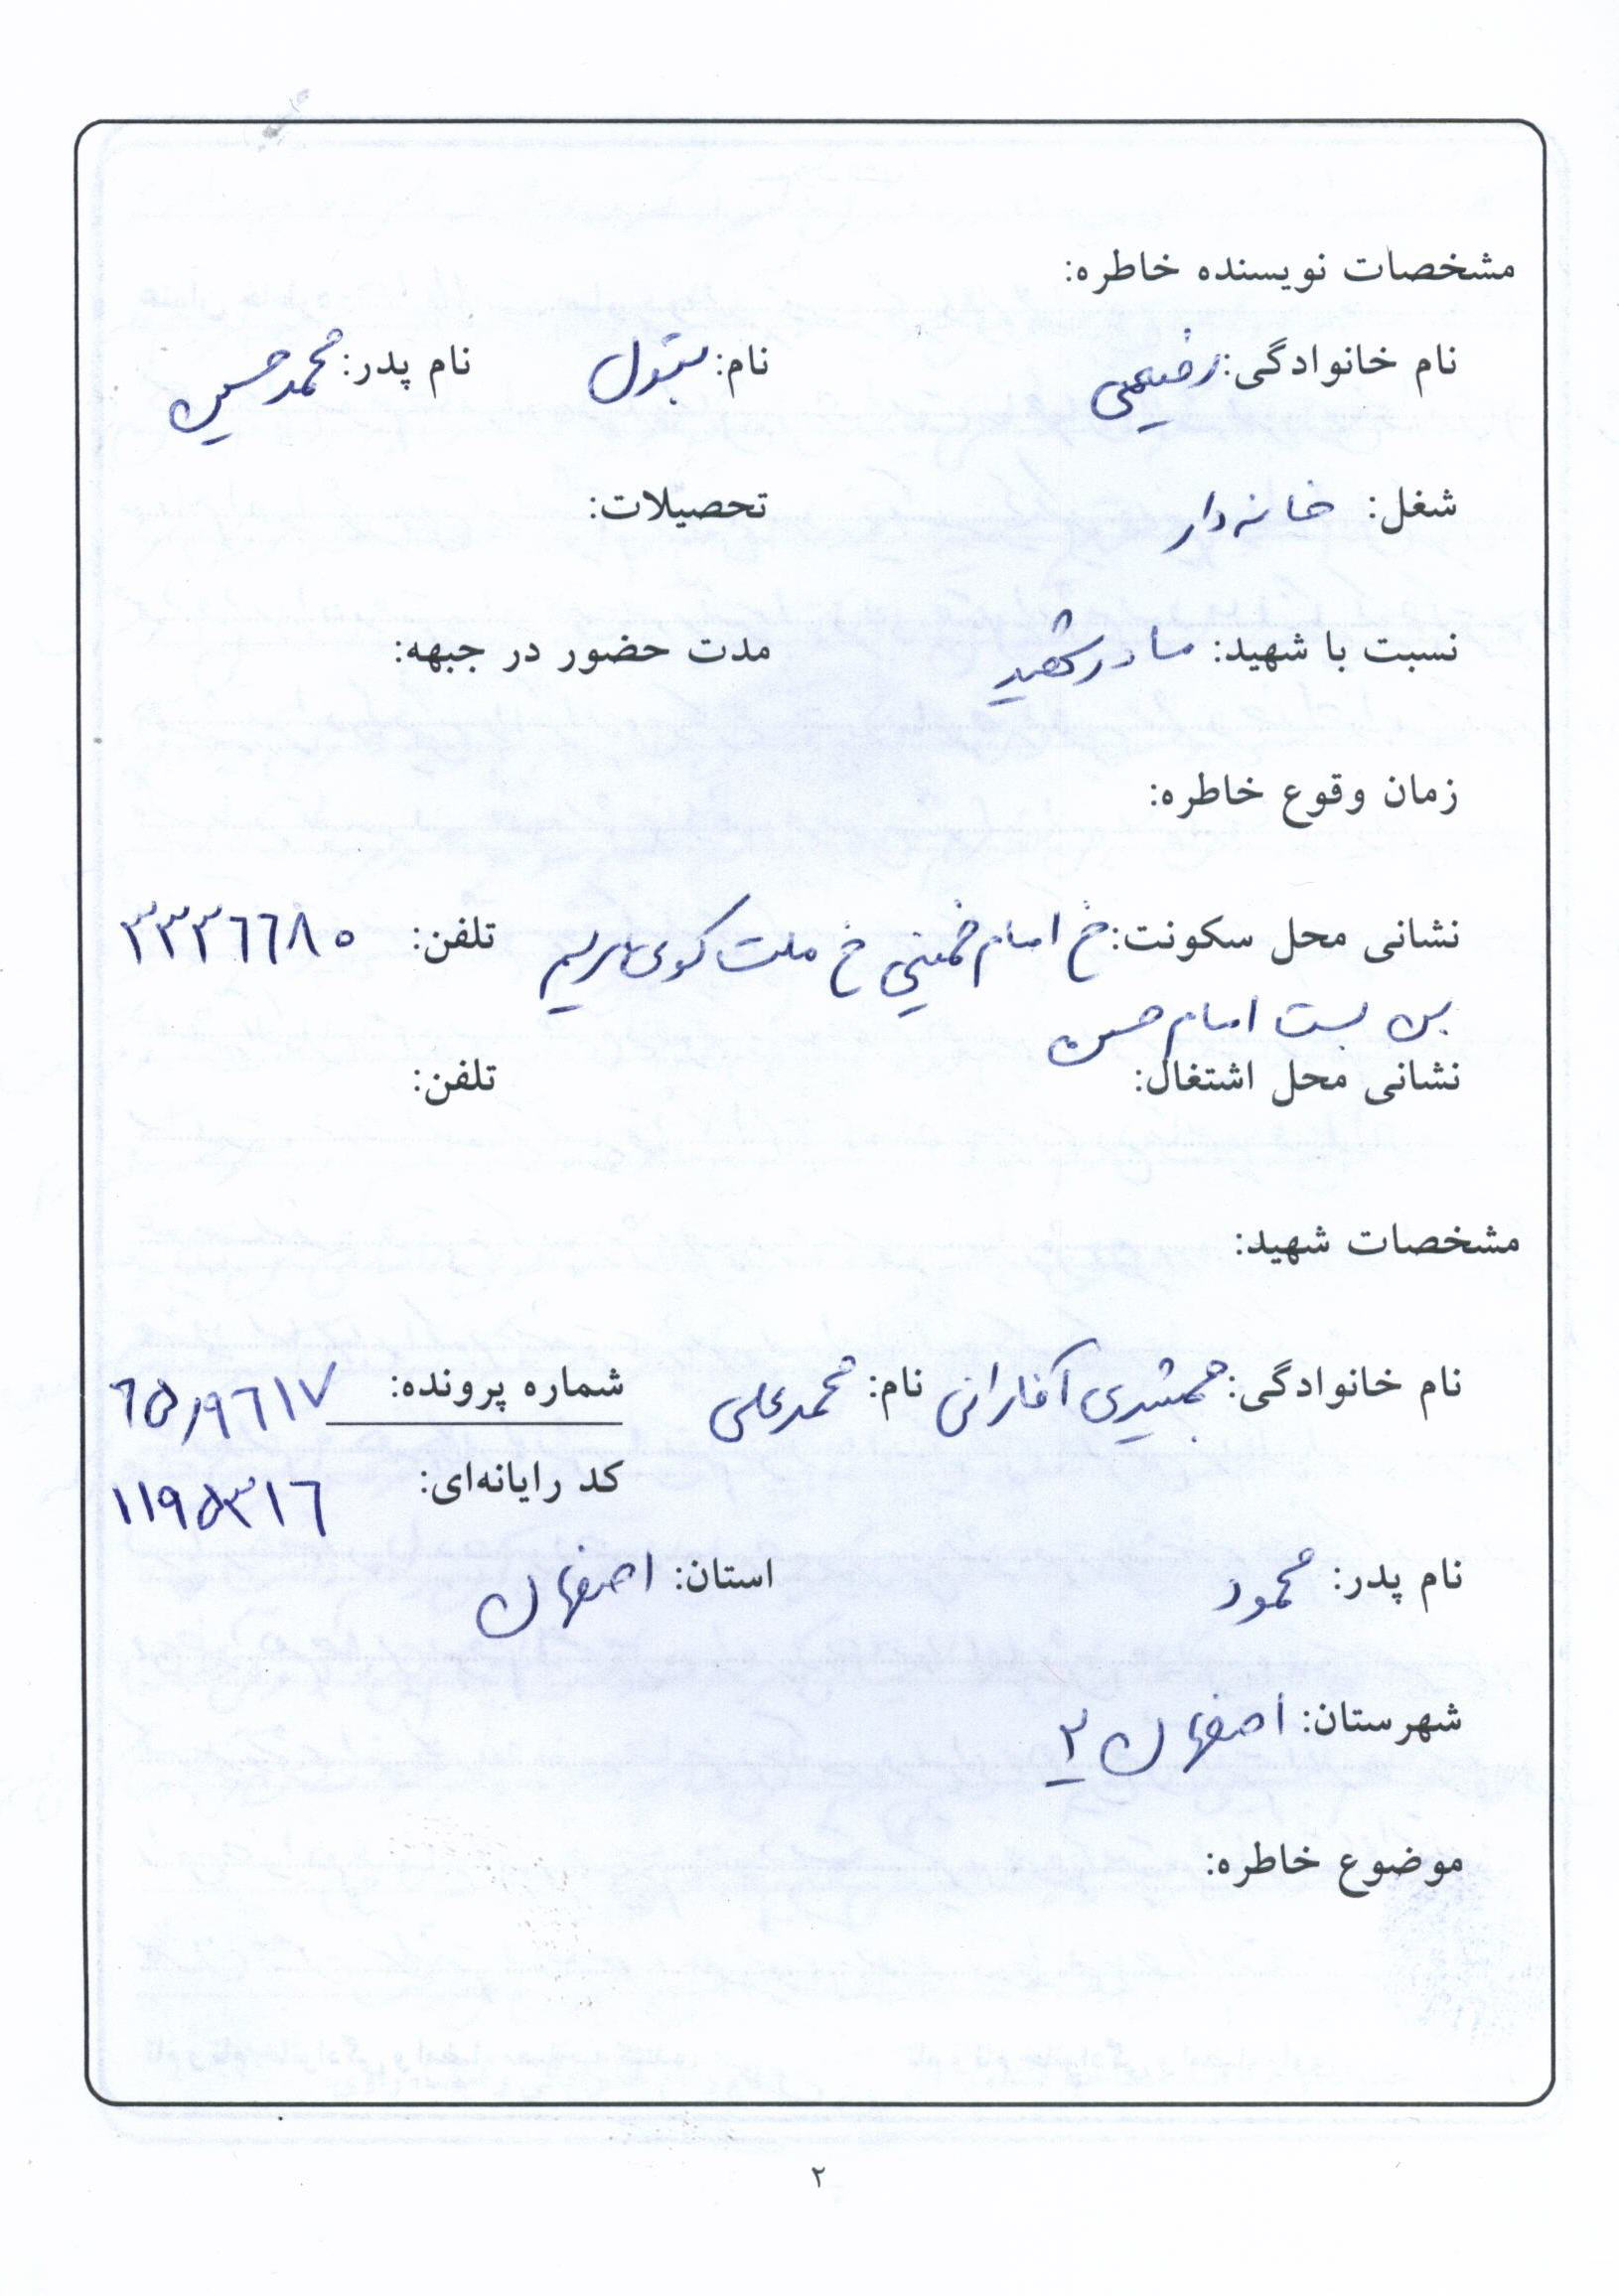 مشخصات نویسنده خاطره:
نام خانوادگی: رضیعی نام: بتول نام پدر: محمدحسین
شغل: خانه‌دار تحصیلات:
نسبت با شهید: مادر شهید مدت حضور در جبهه:
زمان وقوع خاطره:
نشانی محل سکونت: خ امام خمینی خ ملت کوی مریم تلفن: ۳۳۳۶۶۸۰
بن بست امام حسن
نشانی محل اشتغال: تلفن:
مشخصات شهید:
نام خانوادگی: جمشیدی آفارانی نام: محمدعلی شماره پرونده: ۶۵٫۹۶۱۷
کد رایانه‌ای: ۱۱۹۵۳۱۶
نام پدر: محمود استان: اصفهان
شهرستان: اصفهان ۲
موضوع خاطره:
۲